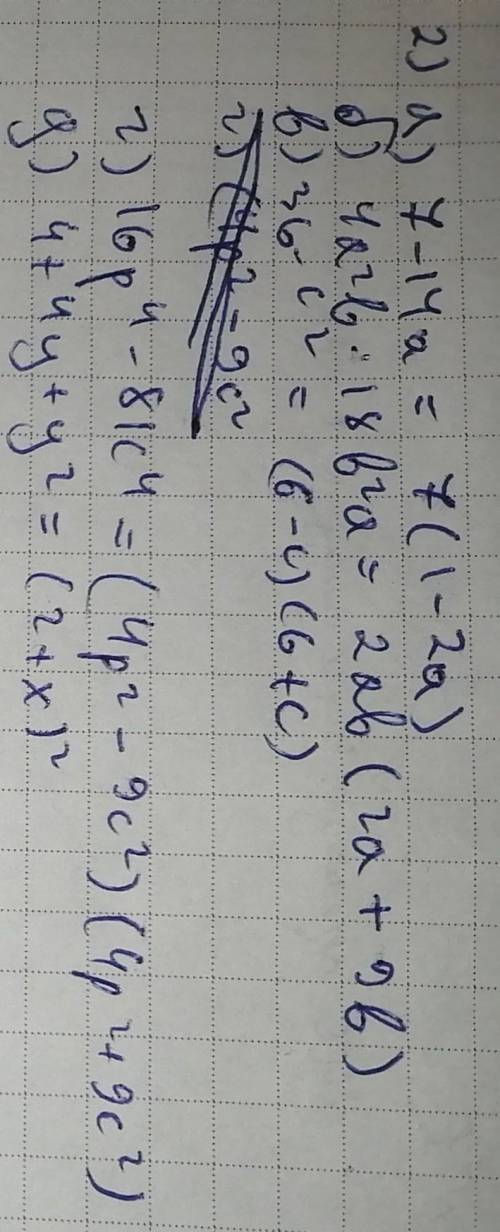 2) а) 7-14a = 7(1-2a)
б) 4a²b · 18b²a = 2ab(2a+9b)
в) 36-c² = (6-c)(6+c)
г) (4p²-9c²
г) 16p⁴-81c⁴ = (4p²-9c²)(4p²+9c²)
д) 4+4y+y² = (2+x)²